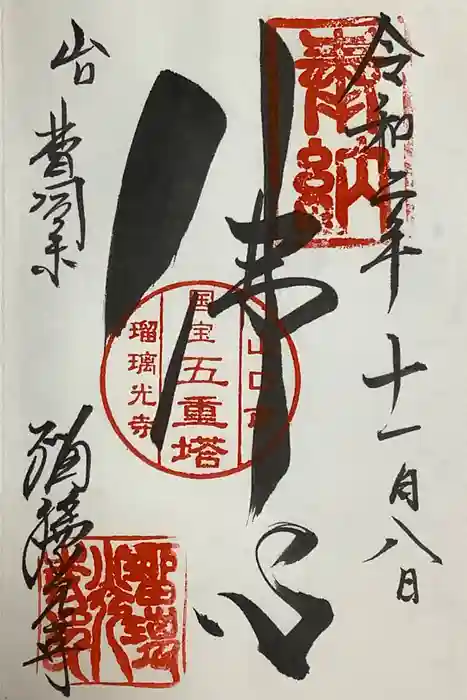 奉納
令和二年十一月八日
佛心
山口市
国宝
五重塔
瑠璃光寺
山口
曹洞宗
瑠璃光寺